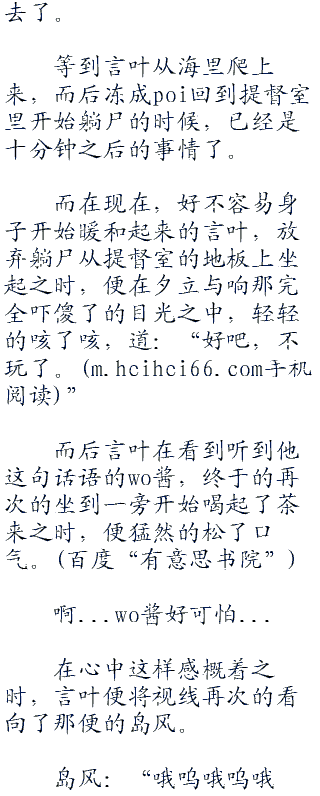 去了。
等到言叶从海里爬上
来，而后冻成poi回到提督室
里开始躺尸的时候，已经是
十分钟之后的事情了。
而在现在，好不容易身
子开始暖和起来的言叶，放
弃躺尸从提督室的地板上坐
起之时，便在夕立与响那完
全吓傻了的目光之中，轻轻
的咳了咳，道：“好吧，不
玩了。(m.hcihci66.com手机
阅读)”
而后言叶在看到听到他
这句话语的wo酱，终于的再
次的坐到一旁开始喝起了茶
来之时，便猛然的松了口
气。(百度“有意思书院”)
啊...wo酱好可怕...
在心中这样感概着之
时，言叶便将视线再次的看
向了那便的岛风。
岛风：“哦呜哦呜哦